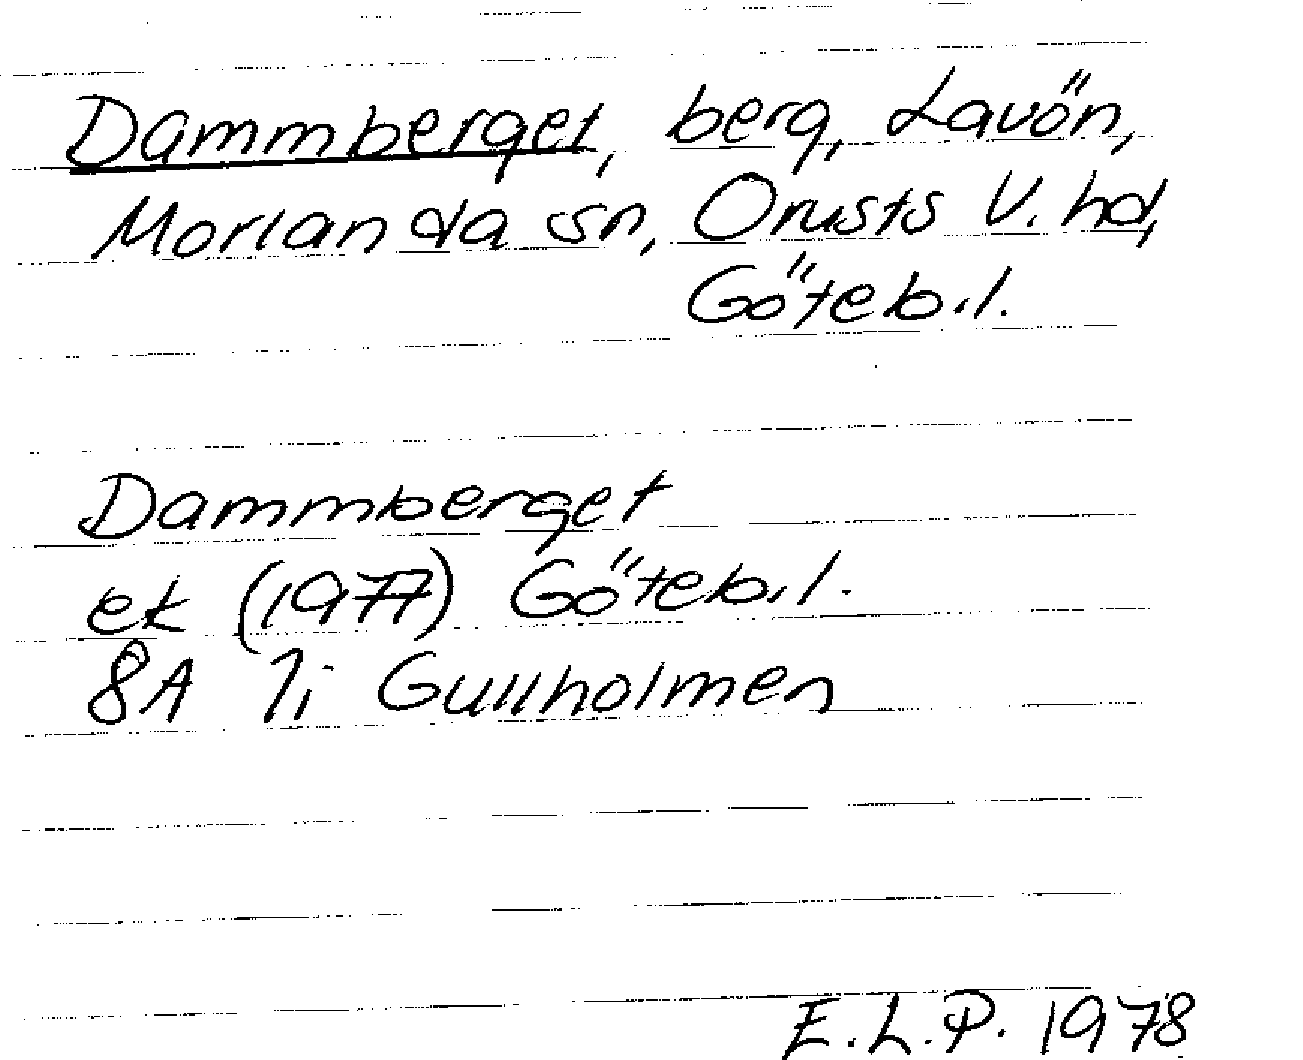 Dammberget, berg, Lavön,
Morlanda sn, Orusts V. hd,
Göteb.l.
Dammberget
ek (1977) Göteb.l.
8A 1i Gullholmen
E.L.P. 1978